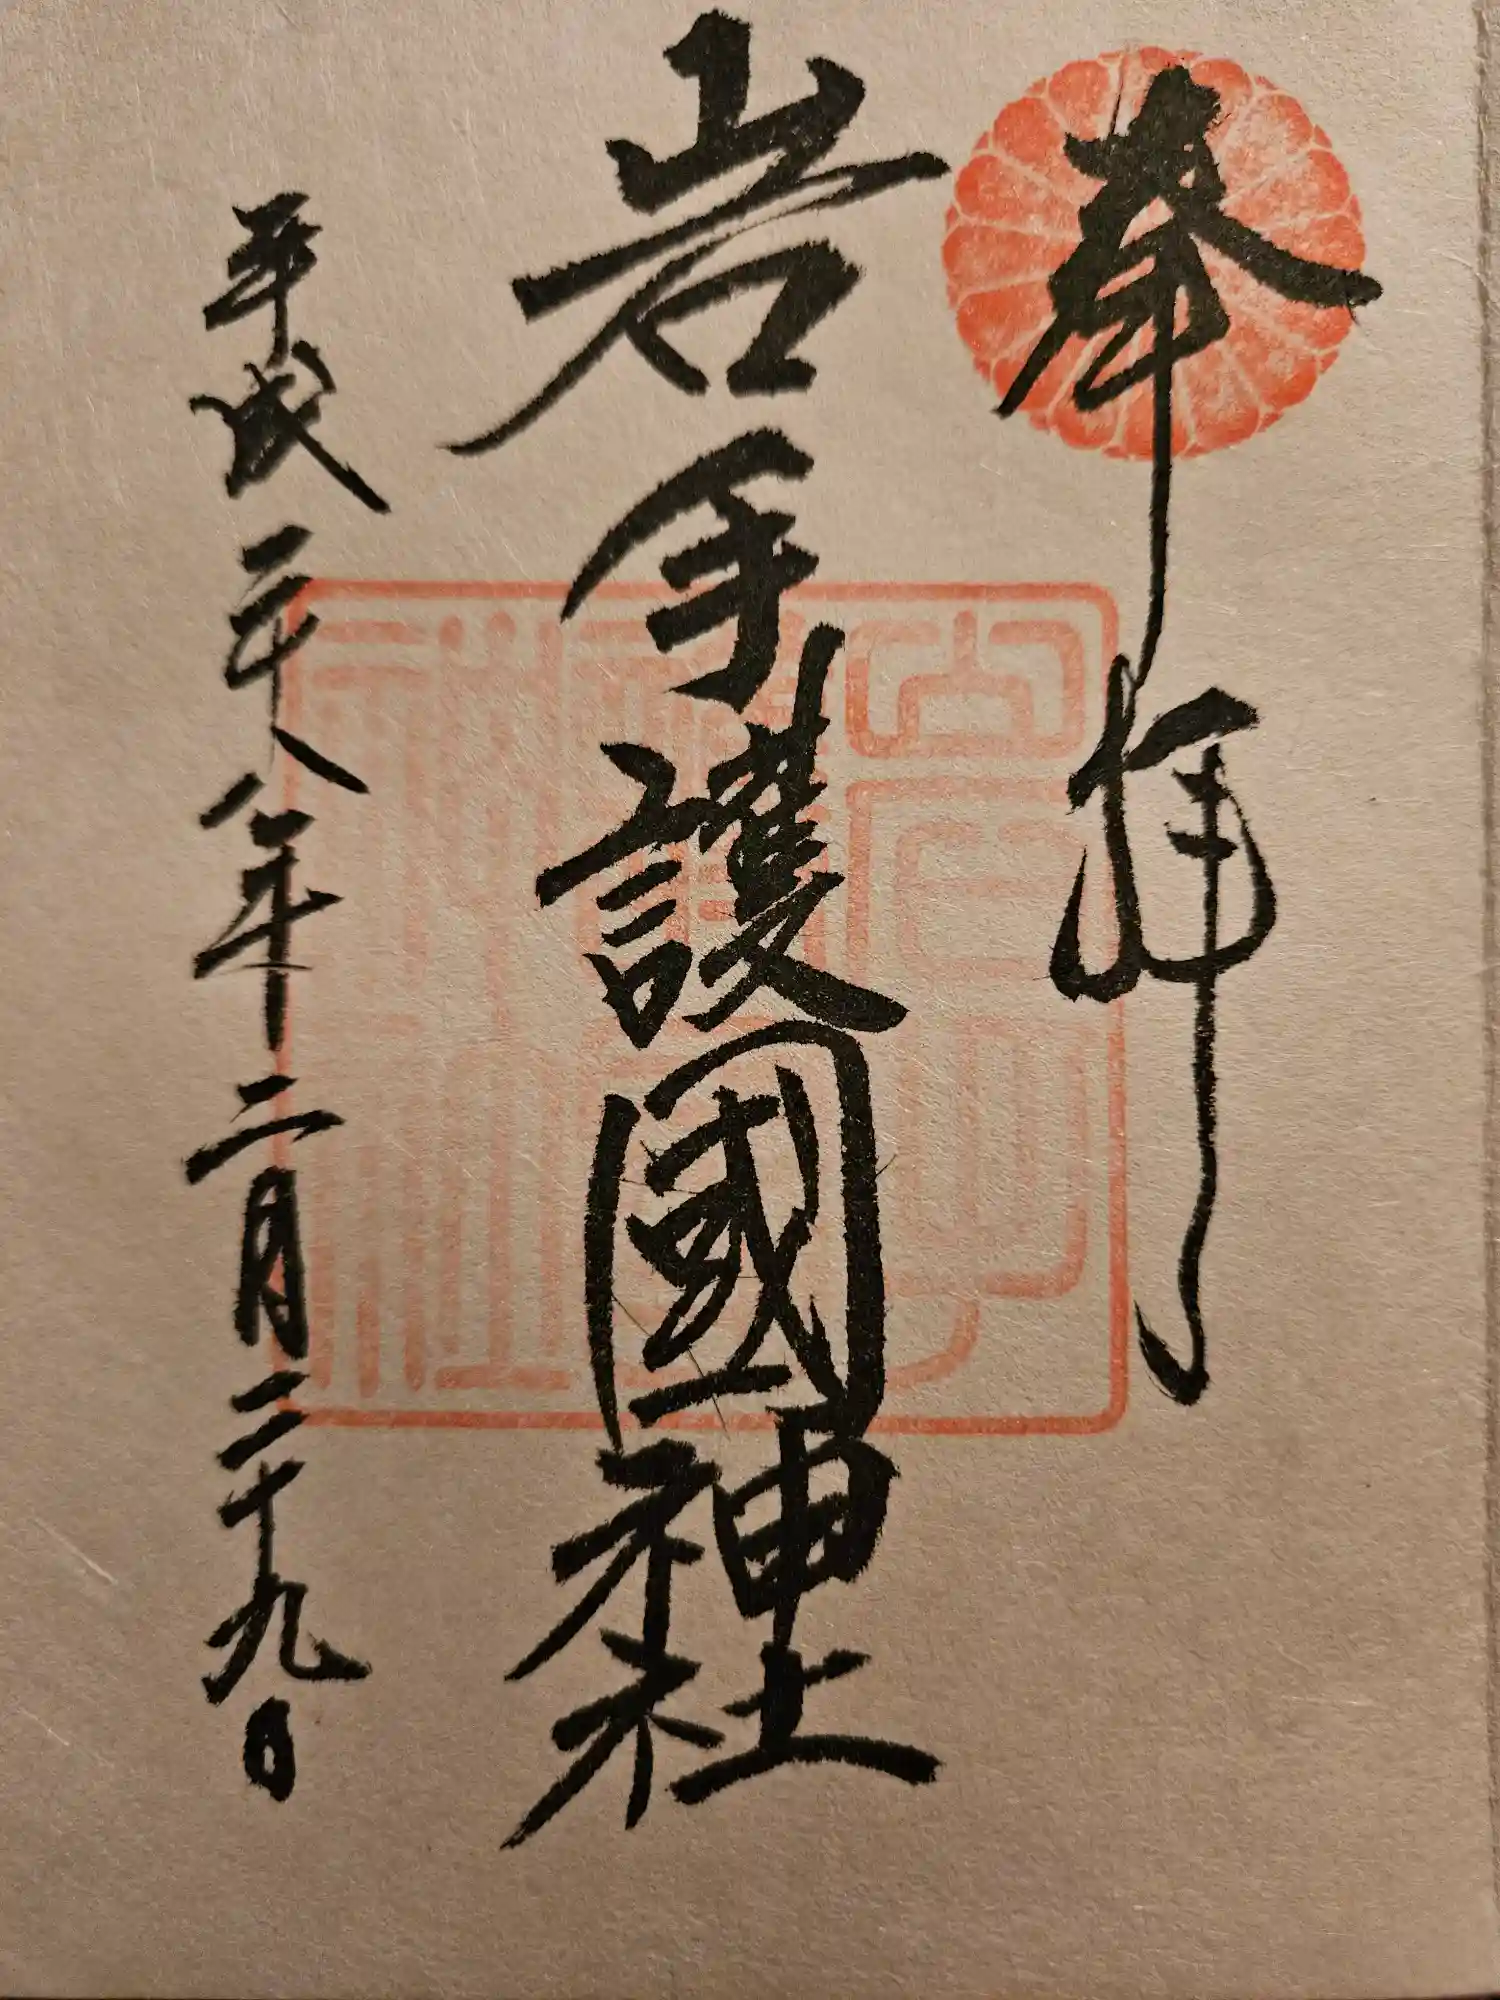 奉拝
岩手護國神社
平成二十八年二月二十九日
岩手
護國
神社